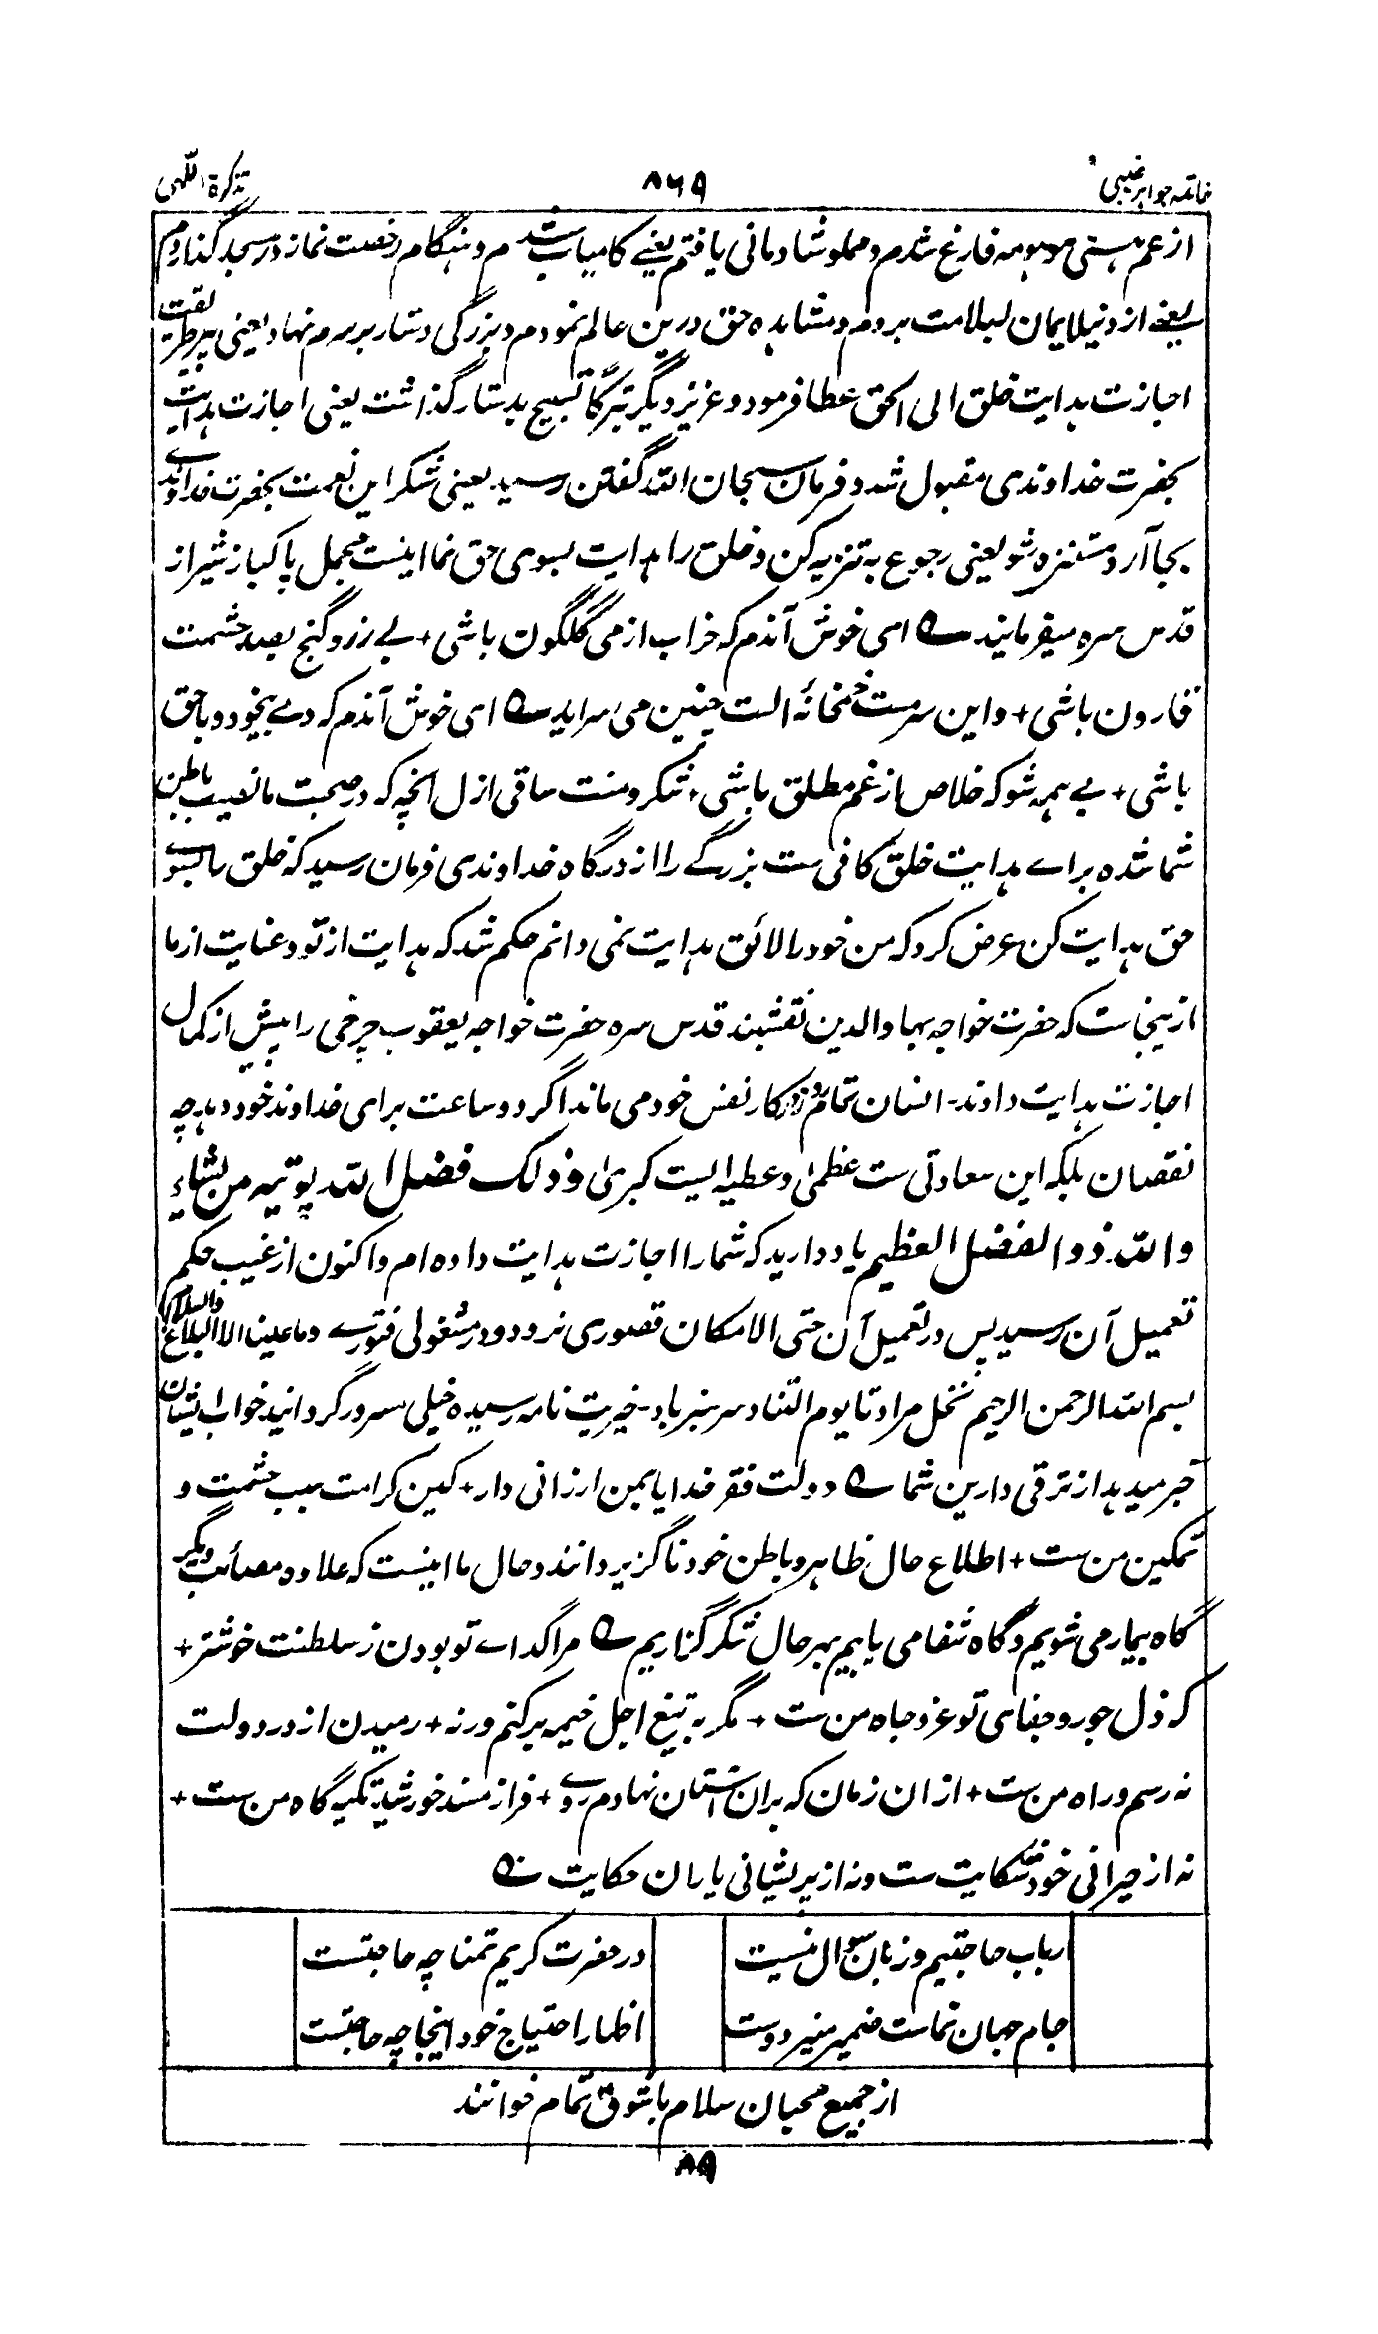 خاتمه جواهر غیبی
۸۶۹
تذکرة اللّهی
از غم هستی موهومه فارغ شدم و مملو شادمانی یافتم یعنے کامیاب شدم و هنگام رخصت نماز در مسجد گذاردم
یعنے از دنیا ایمان بسلامت بردم و مشاهده حق درین عالم نمودم و بزرگی دستار بر سرم نهاد یعنی پیر طریقت
اجازت هدایت خلق الی الحق عطا فرمود و عزیز دیگر تبرگا تسبیح بدستار گذاشت یعنی اجازت هدایت
بحضرت خداوندی مقبول شد و فرمان سبحان الله گفتن رسید یعنی شکر این نعمت بحضرت خداوندی
بجا آر و متنزه شو یعنی رجوع به تنزیه کن و خلق را هدایت بسوی حق نما اینست مجمل پاکباز شیراز
قدس سره میفرمایند ے ای خوش آندم که خراب از می گلگون باشی + بے زر و گنج بصد حشمت
قارون باشی + و این سرمت خمخانهٔ الست چنین می سراید ے ای خوش آندم که دے بیخود و با حق
باشی + بے همه شو که خلاص از غم مطلق باشی + شکر و منت ساقی ازل آنچه که در صحبت ما نصیب باطن
شما شده براے هدایت خلق کافی ست بزرگے را از درگاه خداوندی فرمان رسید که خلق را بسوے
حق هدایت کن عرض کرد که من خود را لائق هدایت نمی دانم حکم شد که هدایت از تو و عنایت از ما
ازینجاست که حضرت خواجه بهاو الدین نقشبند قدس سره حضرت خواجه یعقوب چرخی را پیش از کمال
اجازت هدایت دادند - انسان تمام روز در کار نفس خود می ماند اگر دو ساعت برای خداوند خود دهد چه
نقصان بلکه این سعادتی ست عظمیٰ و عطیه ایست کبریٰ و ذلک فضل الله یوتیه من یشاء
والله ذوالفضل العظیم یاد دارید که شما را اجازت هدایت داده ام و اکنون از غیب حکم
تعمیل آن رسید پس در تعمیل آن حتی الامکان قصوری نرود و در مشغولی فتورے وما علینا الا البلاغ والسلام
بسم الله الرحمن الرحیم نخل مراد تا یوم التناد سرسبز باد - خیریت نامه رسیده خیلی مسرور گردانید خواب ایشان
خبر میدهد از ترقی دارین شما ے دولت فقر خدایا بمن ارزانی دار + کین کرامت سبب حشمت و
تمکین من ست + اطلاع حال ظاهر و باطن خود ناگزیر دانند و حال ما اینست که علاوه مصائب دیگر
گاه بیمار می شویم و گاه شفا می یابیم بهر حال شکر گزاریم ے مرا گداے تو بودن ز سلطنت خوشتر +
که ذل جور و جفای تو عز و جاه من ست + مگر به تیغ اجل خیمه برکنم ورنه + رمیدن از در دولت
نه رسم و راه من ست + از ان زمان که بران آستان نهادم روے + فراز مسند خورشید تکیه گاه من ست +
نه از حیرانی خود شکایت ست و نه از پریشانی یاران حکایت ے
ارباب حاجتیم و زبان سوال نیست
در حضرت کریم تمنا چه حاجتست
جام جهان نماست ضمیر منیر دوست
اظهار احتیاج خود اینجا چه حاجتست
از جمیع محبان سلام با شوق تمام خوانند
۸۹